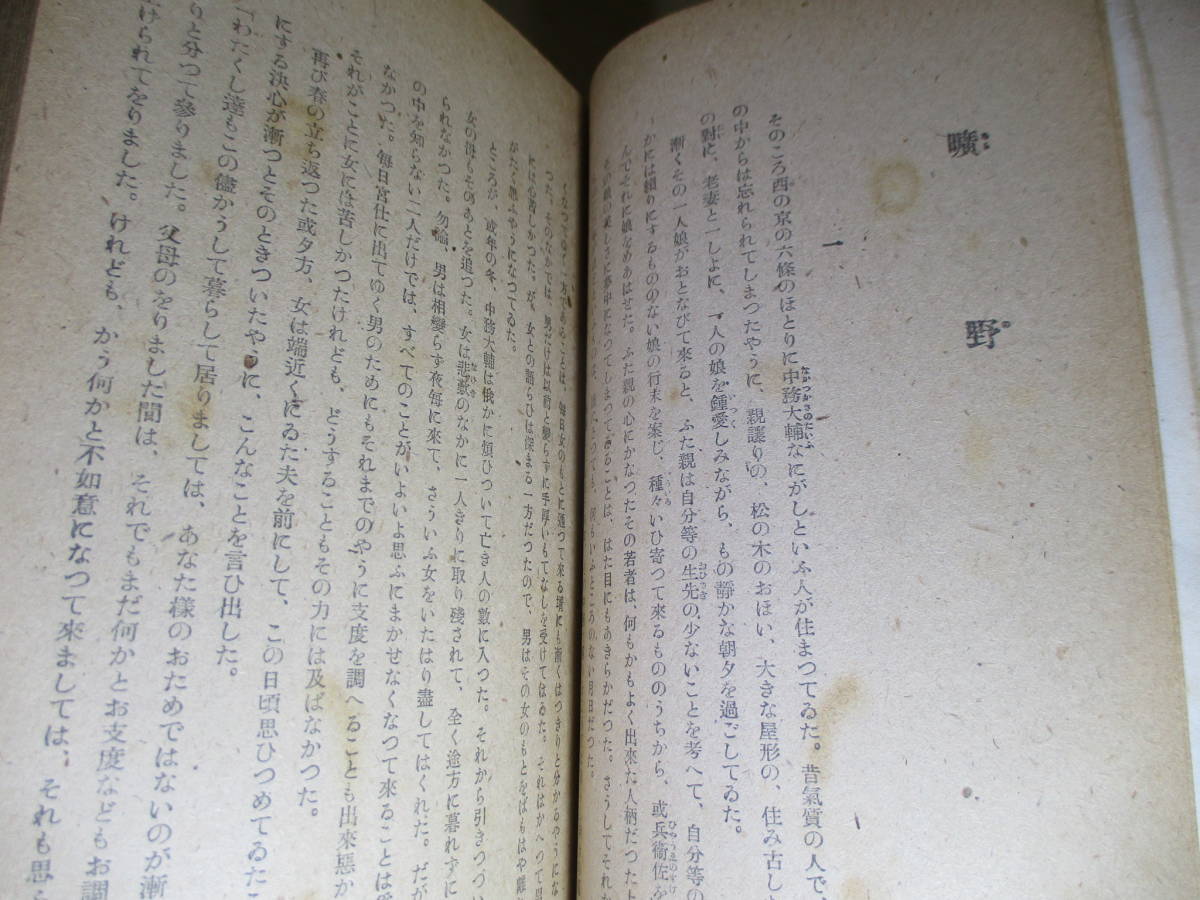 曠野
一
そのころ西の京の六條のほとりに中務大輔なにがしといふ人が住まつてゐた。昔氣質の人で、
の中からは忘れられてしまつたやうに、親讓りの、松の木のおほい、大きな屋形の、住み古し
の對に、老妻と一しよに、一人の娘を鍾愛しみながら、もの靜かな朝夕を過ごしてゐた。
漸くその一人娘がおとなびて來ると、ふた親は自分等の生先の少ないことを考へて、自分等の
かには頼りにするもののない娘の行末を案じ、種々いひ寄つて來るもののうちから、或兵衞佐を
んでそれに娘をめあはせた。ふた親の心にかなつたその若者は、何もかもよく出來た人柄だつた
その娘の美しさに夢中になつてしまつてゐることは、はた目にもあきらかだつた。さうしてそれ
月日だつた。
くなつてゆく一方であることは、毎日女のもとに通つて來る壻にも漸くはつきりと分かるやうにな
つた。そのなかでは、男だけは以前と變らずに手厚いもてなしを受けてはゐた。それはかへつて
には心苦しかつた。が、女との語らひは深まる一方だつたので、男はその女のもとをばもはや離
がたく思ふやうになつてゐた。
ところが、或年の冬、中務大輔は俄かに煩ひついて亡き人の數に入つた。それから引きつづい
女の母もそのあとを追つた。女は悲歎のなかに一人きりに取り殘されて、全く途方に暮れずに
られなかつた。勿論、男は相變らず夜毎に來て、さういふ女をいたはり盡してはくれた。だが
の中を知らない二人だけでは、すべてのことがいよいよ思ふにまかせなくなつて來ることは
なかつた。毎日宮仕に出てゆく男のためにもそれまでのやうに支度を調へることも出來惡か
それがことに女には苦しかつたけれども、どうすることもその力には及ばなかつた。
再び春の立ち返つた或夕方、女は端近くにゐた夫を前にして、この日頃思ひつめてゐたこ
にする決心が漸つとそのときついたやうに、こんなことを言ひ出した。
「わたくし達もこの儘かうして暮らして居りましては、あなた樣のおためではないのが漸
りと分つて參りました。父母のをりました間は、それでもまだ何かとお支度などもお調
上げられてをりました。けれども、かう何かと不如意になつて來ましては、それも思